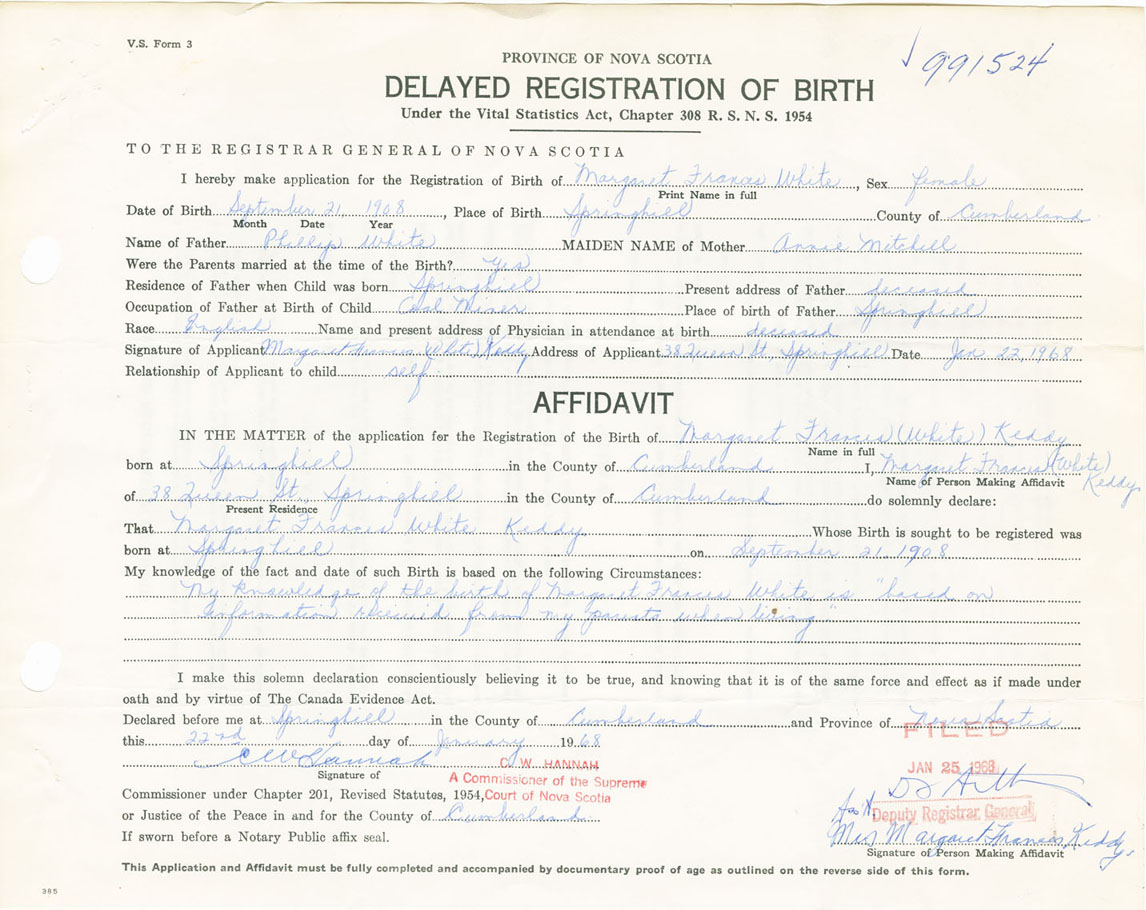 V.S. Form 3
991524
PROVINCE OF NOVA SCOTIA
DELAYED REGISTRATION OF BIRTH
Under the Vital Statistics Act, Chapter 308 R. S. N. S. 1954
TO THE REGISTRAR GENERAL OF NOVA SCOTIA
I hereby make application for the Registration of Birth of Margaret Frances White, Sex female
Print Name in full
Date of Birth September 21, 1908, Place of Birth Springhill County of Cumberland
Month Date Year
Name of Father Phillip White MAIDEN NAME of Mother Annie Mitchell
Were the Parents married at the time of the Birth? Yes
Residence of Father when Child was born Springhill Present address of Father deceased
Occupation of Father at Birth of Child Coal Miner Place of birth of Father Springhill
Race English Name and present address of Physician in attendance at birth deceased
Signature of Applicant Margaret Frances (White) Keddy Address of Applicant 38 Queen St. Springhill Date Jan 22, 1968
Relationship of Applicant to child self.
AFFIDAVIT
IN THE MATTER of the application for the Registration of the Birth of Margaret Frances (White) Keddy
Name in full
born at Springhill in the County of Cumberland I, Margaret Frances (White) Keddy
Name of Person Making Affidavit
of 38 Queen St., Springhill in the County of Cumberland do solemnly declare:
Present Residence
That Margaret Frances White Keddy Whose Birth is sought to be registered was
born at Springhill on September 21, 1908
My knowledge of the fact and date of such Birth is based on the following Circumstances:
My knowledge of the birth of Margaret Frances White is "based on
information received from my parents when living"
I make this solemn declaration conscientiously believing it to be true, and knowing that it is of the same force and effect as if made under
oath and by virtue of The Canada Evidence Act.
Declared before me at Springhill in the County of Cumberland and Province of Nova Scotia
this 22nd day of January 1968
FILED
C W Hannah
C. W. HANNAH
JAN 25 1968
Signature of
A Commissioner of the Supreme
Commissioner under Chapter 201, Revised Statutes, 1954, Court of Nova Scotia
or Justice of the Peace in and for the County of Cumberland
Ass't Deputy Registrar General
If sworn before a Notary Public affix seal.
Mrs Margaret Frances Keddy.
Signature of Person Making Affidavit
This Application and Affidavit must be fully completed and accompanied by documentary proof of age as outlined on the reverse side of this form.
385